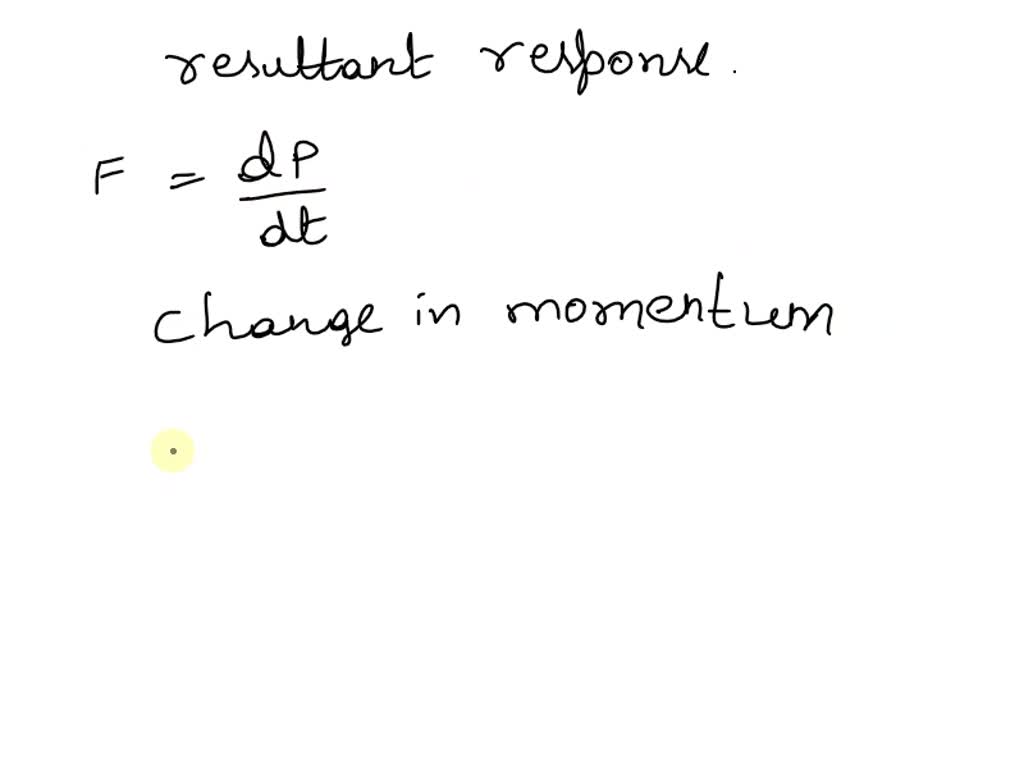 resultant response.
F = dP/dt
change in momentum